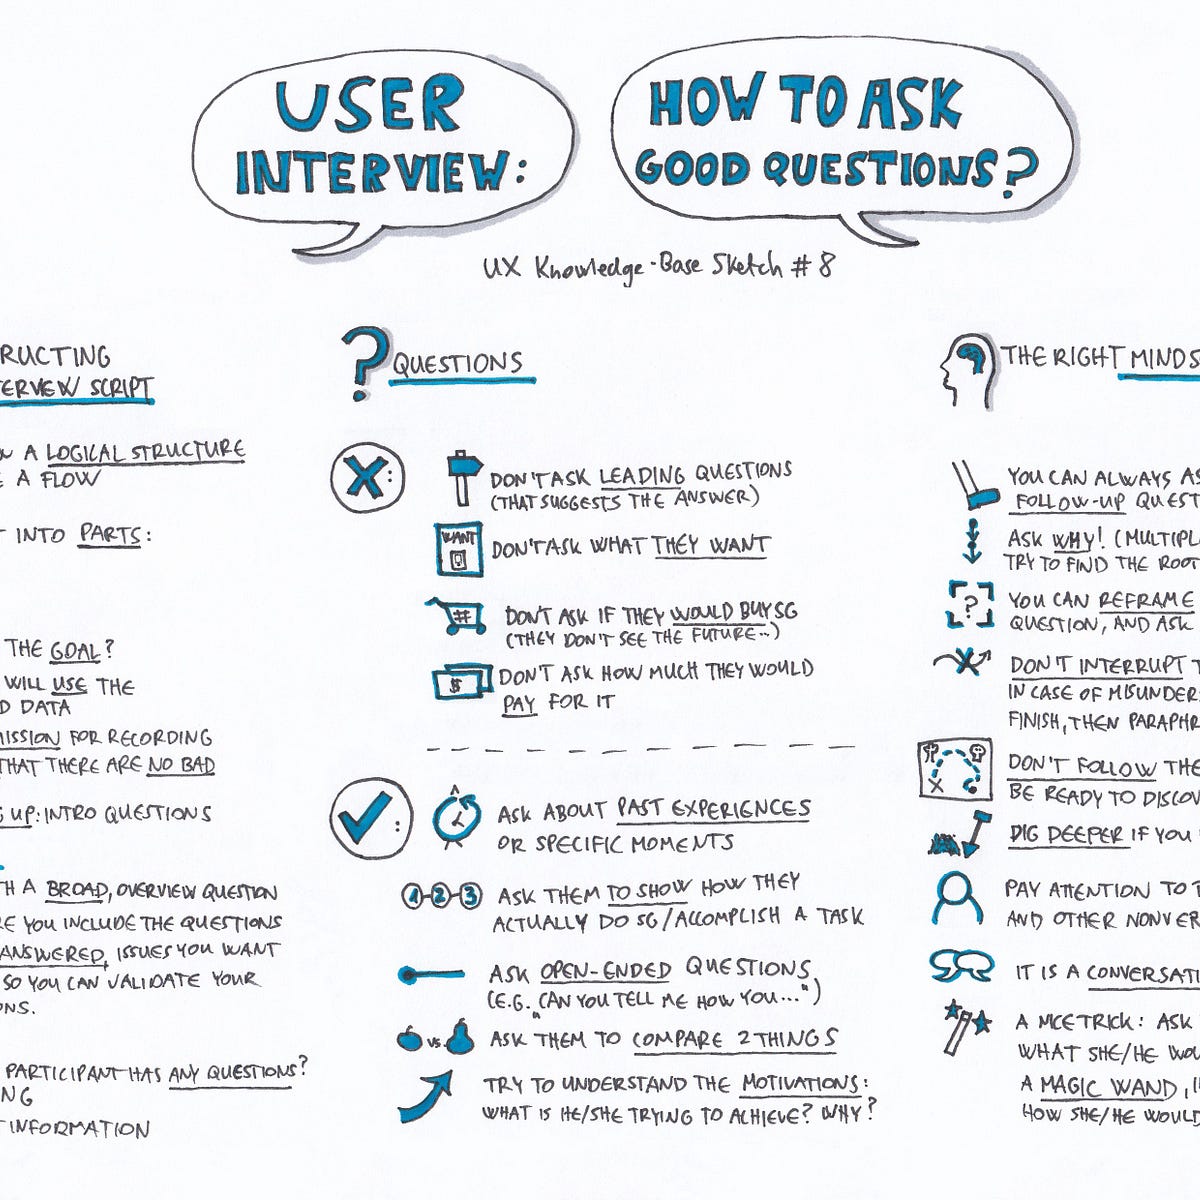 USER
INTERVIEW:
HOW TO ASK
GOOD QUESTIONS?
UX Knowledge-Base Sketch #8
RUCTING
TERVIEW SCRIPT
W A LOGICAL STRUCTURE
E A FLOW
T INTO PARTS:
THE GOAL?
WILL USE THE
D DATA
MISSION FOR RECORDING
THAT THERE ARE NO BAD
G UP: INTRO QUESTIONS
TH A BROAD, OVERVIEW QUESTION
RE YOU INCLUDE THE QUESTIONS
ANSWERED, ISSUES YOU WANT
SO YOU CAN VALIDATE YOUR
ONS.
PARTICIPANT HAS ANY QUESTIONS?
NG
T INFORMATION
? QUESTIONS
X:
DON'T ASK LEADING QUESTIONS
(THAT SUGGESTS THE ANSWER)
WANT
DON'T ASK WHAT THEY WANT
#
DON'T ASK IF THEY WOULD BUY SG
(THEY DON'T SEE THE FUTURE...)
$
DON'T ASK HOW MUCH THEY WOULD
PAY FOR IT
:
ASK ABOUT PAST EXPERIENCES
OR SPECIFIC MOMENTS
1-2-3
ASK THEM TO SHOW HOW THEY
ACTUALLY DO SG/ACCOMPLISH A TASK
ASK OPEN-ENDED QUESTIONS
(E.G. "CAN YOU TELL ME HOW YOU...")
VS.
ASK THEM TO COMPARE 2 THINGS
TRY TO UNDERSTAND THE MOTIVATIONS:
WHAT IS HE/SHE TRYING TO ACHIEVE? WHY?
THE RIGHT MINDS
YOU CAN ALWAYS AS
FOLLOW-UP QUEST
ASK WHY! (MULTIPL
TRY TO FIND THE ROOT
?
YOU CAN REFRAME
QUESTION, AND ASK
DON'T INTERRUPT T
IN CASE OF MISUNDERS
FINISH, THEN PARAPHR
DON'T FOLLOW THE
BE READY TO DISCOV
DIG DEEPER IF YOU
PAY ATTENTION TO T
AND OTHER NONVER
IT IS A CONVERSATI
A NICE TRICK: ASK
WHAT SHE/HE WOU
A MAGIC WAND, I
HOW SHE/HE WOULD